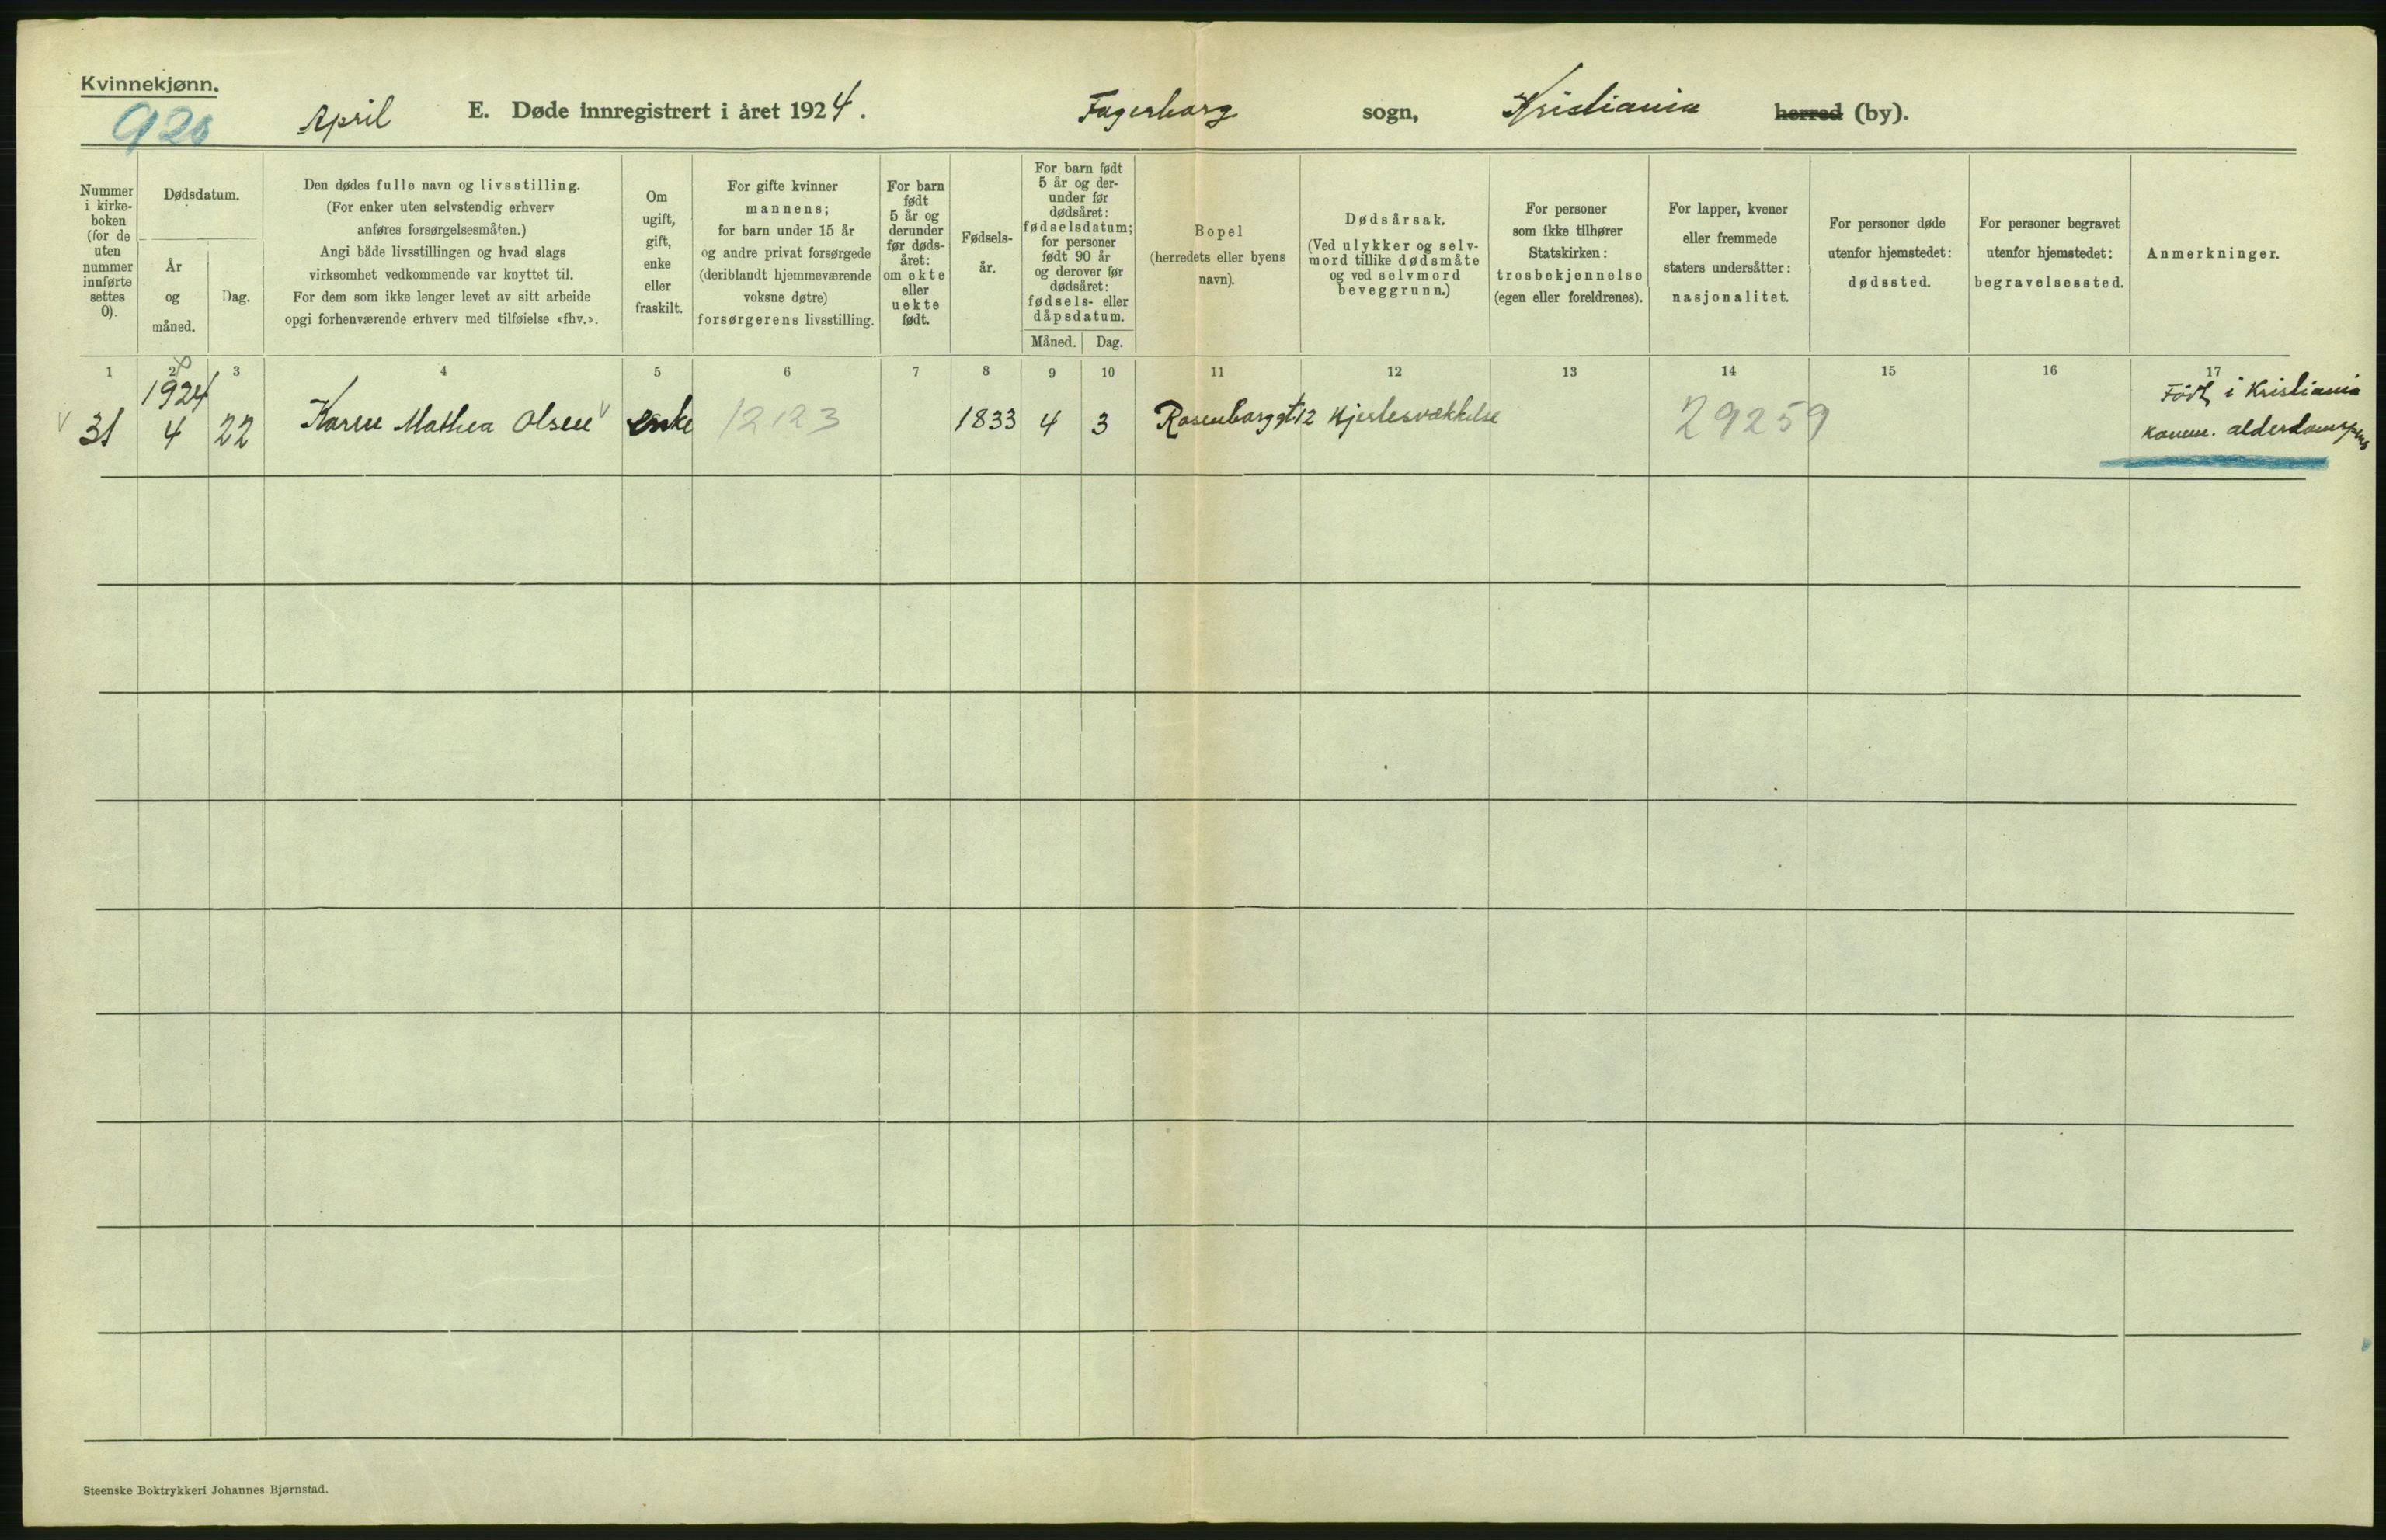 Kvinnekjønn.
April E. Døde innregistrert i året 1924. Fagerborg sogn, Kristiania herred (by).
Nummer
i kirke-
boken
(for de
uten
nummer
innførte
settes
0).
Dødsdatum.
År
og
måned.
Dag.
Den dødes fulle navn og livsstilling.
(For enker uten selvstendig erhverv
anføres forsørgelsesmåten.)
Angi både livsstillingen og hvad slags
virksomhet vedkommende var knyttet til.
For dem som ikke lenger levet av sitt arbeide
opgi forhenværende erhverv med tilføielse «fhv.».
Om
ugift,
gift,
enke
eller
fraskilt.
For gifte kvinner
mannens;
for barn under 15 år
og andre privat forsørgede
(deriblandt hjemmeværende
voksne døtre)
forsørgerens livsstilling.
For barn
født
5 år og
derunder
før døds-
året:
om ekte
eller
uekte
født.
Fødsels-
år.
For barn født
5 år og der-
under før
dødsåret:
fødselsdatum;
for personer
født 90 år
og derover før
dødsåret:
fødsels- eller
dåpsdatum.
Måned. Dag.
Bopel
(herredets eller byens
navn).
Dødsårsak.
(Ved ulykker og selv-
mord tillike dødsmåte
og ved selvmord
beveggrunn.)
For personer
som ikke tilhører
Statskirken:
trosbekjennelse
(egen eller foreldrenes).
For lapper, kvener
eller fremmede
staters undersåtter:
nasjonalitet.
For personer døde
utenfor hjemstedet:
dødssted.
For personer begravet
utenfor hjemstedet:
begravelsessted.
Anmerkninger.
1 2 3 4 5 6 7 8 9 10 11 12 13 14 15 16 17
1924 Født i Kristiania
31 4 22 Karen Mathea Olsen enke 12123 1833 4 3 Rosenborggt. 12 Hjertesvækkelse 29259 Komm. alderdomspens
Steenske Boktrykkeri Johannes Bjørnstad.